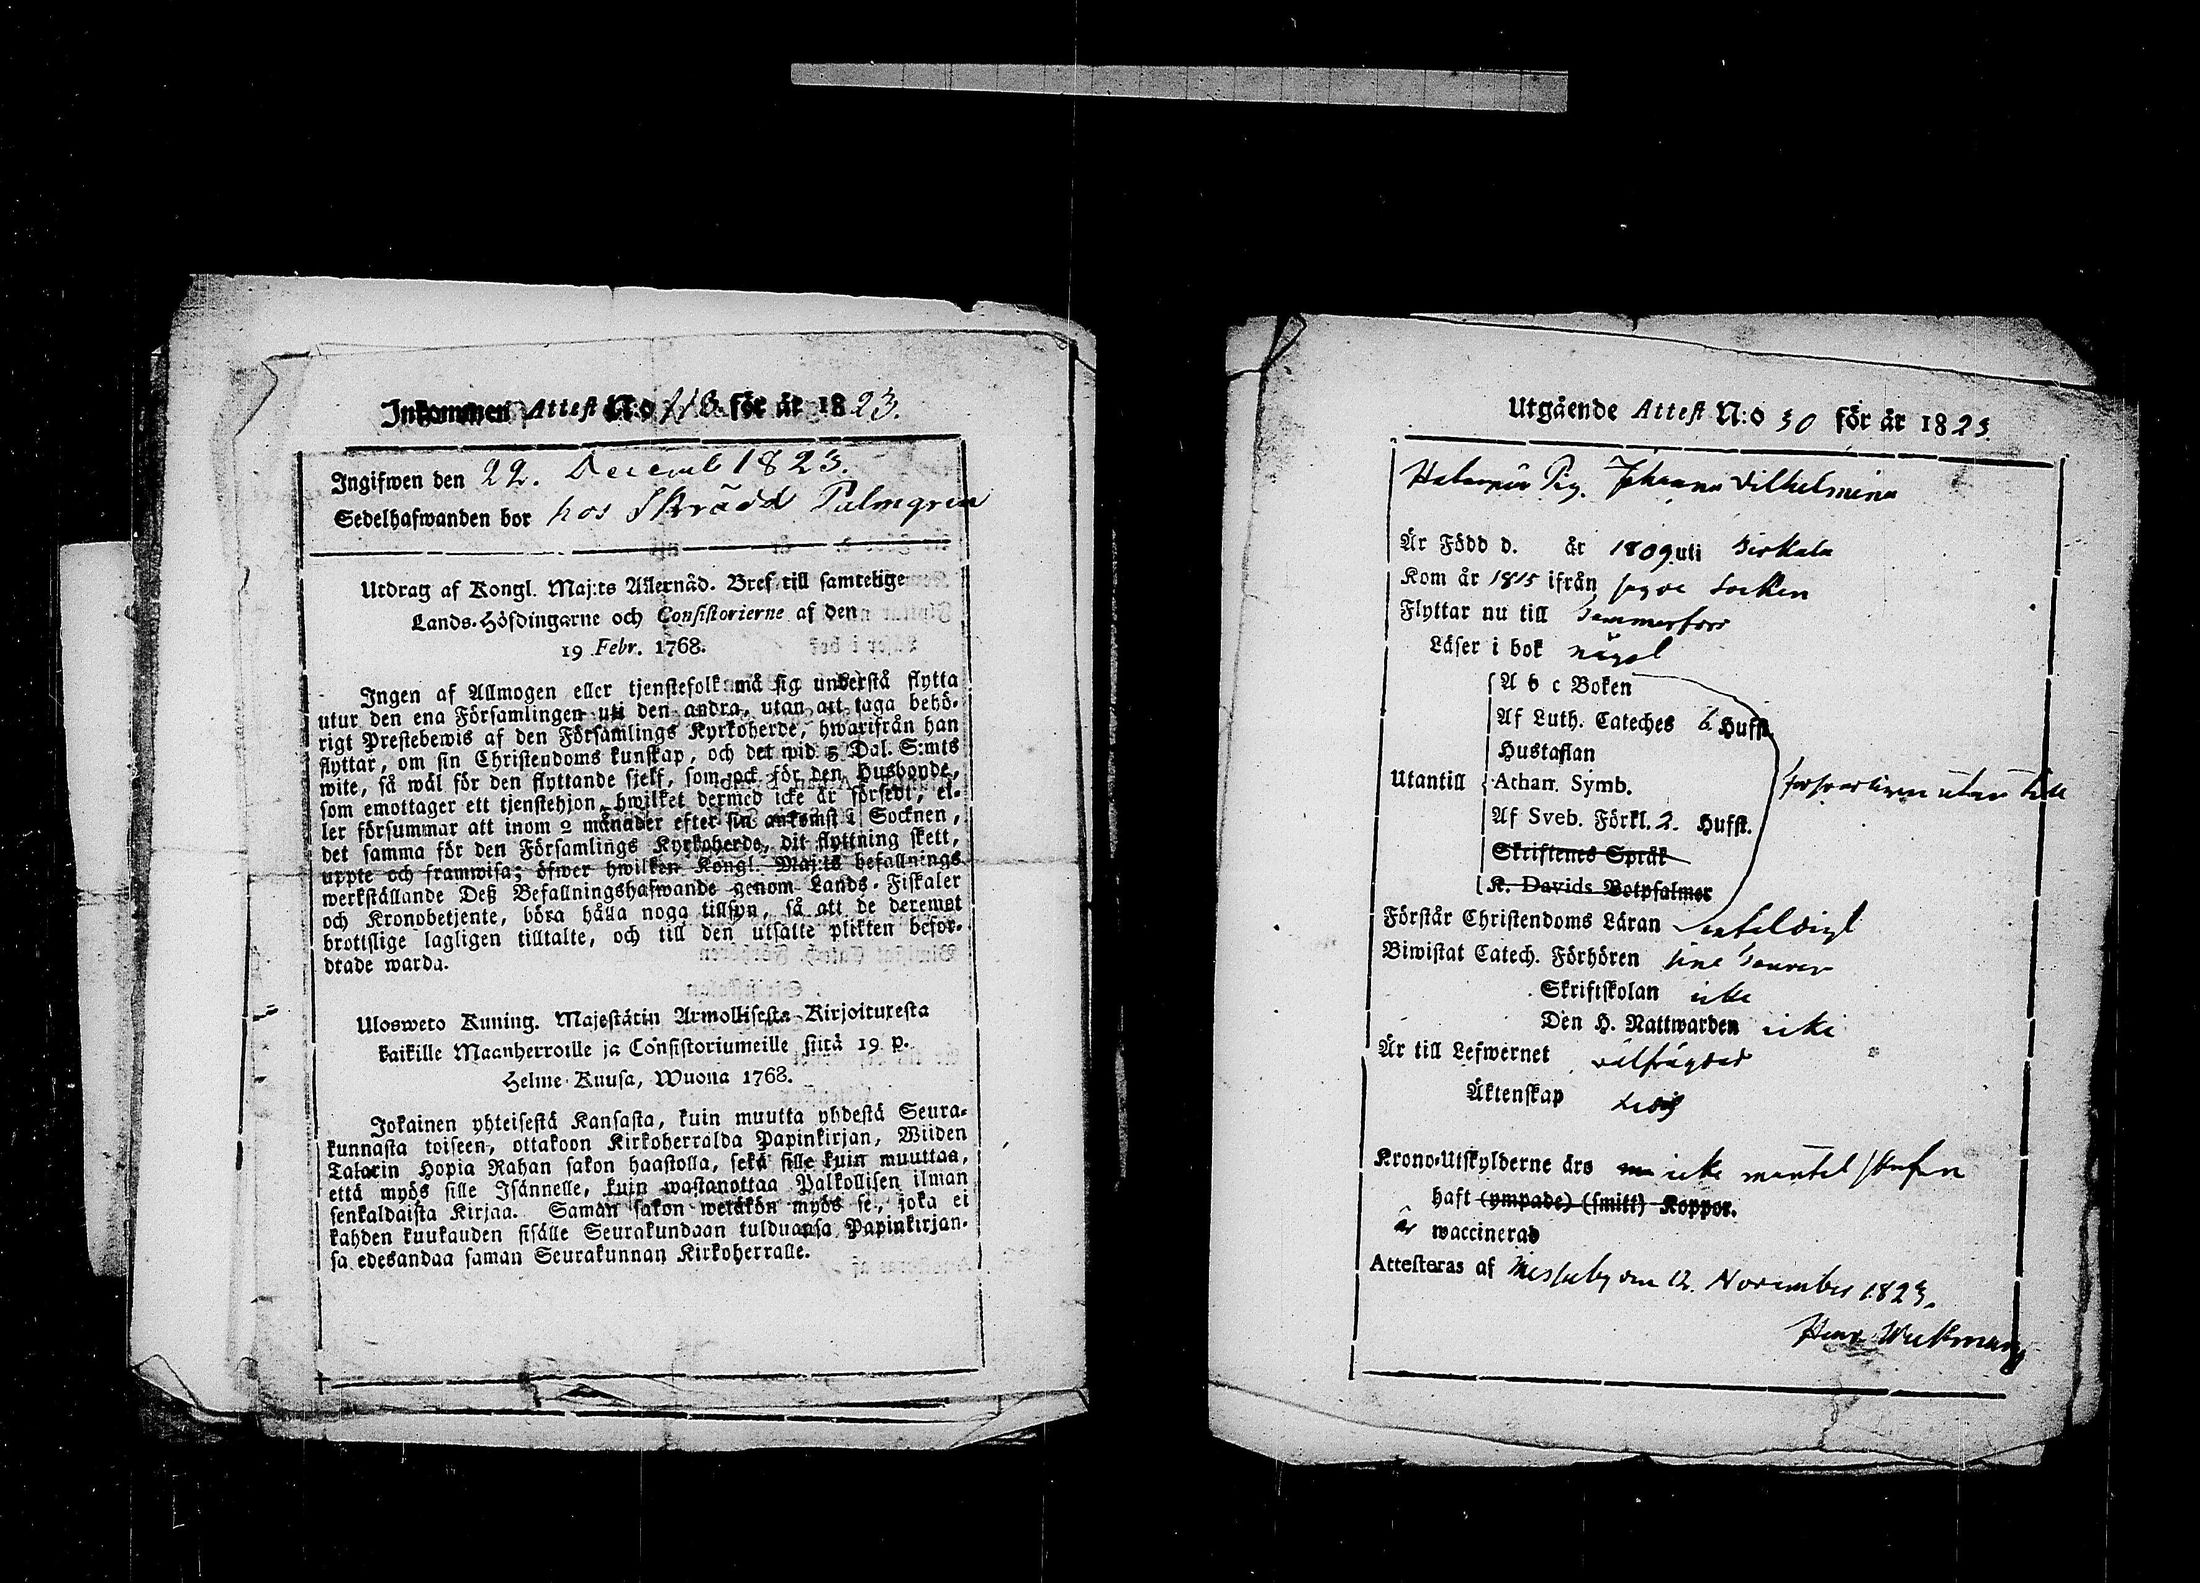 Inkommen Attest N:o 118 för år 1823.
Ingifwen den 22. Decemb 1823.
Sedelhafwanden bor hos Skrädd Palmgren
Utdrag af Kongl. Maj:ts Allernåd. Bref till samtelige
Lands-Höfdingarne och Consistorierne af den
19 Febr. 1768.
Ingen af Allmogen eller tjenstefolk må sig understå flytta
utur den ena Församlingen uti den andra, utan att taga behö-
rigt Prestebewis af den Församlings Kyrkoherde, hwarifrån han
flyttar, om sin Christendoms kunskap, och det wid 5 Dal. S:mts
wite, så wäl för den flyttande sjelf, som ock för den Husbonde,
som emottager ett tjenstehjon, hwilket dermed icke är försedt, el-
ler försummar att inom 2 månader efter sin ankomst i Socknen,
det samma för den Församlings Kyrkoherde, dit flyttning skett,
uppte och framwisa; öfwer hwilken Kongl. Maj:ts befallnings
werkställande Deß Befallningshafwande genom Lands-Fiskaler
och Kronobetjente, böra hålla noga tillsyn, så att de deremot
brottslige lagligen tilltalte, och till den utsatte plikten befor-
drade warda.
Ulosweto Kuning. Majestätin Armollisesta Kirjoituxesta
kaikille Maanherroille ja Consistoriumeille siitä 19 p.
Helme-Kuusa, Wuona 1768.
Jokainen yhteisestä Kansasta, kuin muutta yhdestä Seura-
kunnasta toiseen, ottakoon Kirkoherralda Papinkirjan, Wiiden
Talarin Hopia Rahan sakon haastolla, sekä sille kuin muuttaa,
että myös sille Isännelle, kuin wastanottaa Palkollisen ilman
senkaldaista Kirjaa. Saman sakon wetäkön myös se, joka ei
kahden kuukauden sisälle Seurakundaan tulduansa Papinkirjan-
sa edesandaa saman Seurakunnan Kirkoherralle.
Utgående Attest N:o 30 för år 1823.
Pig. Johanna Vilhelmina
Är Född d. år 1809 uti Birkala
Kom år 1815 ifrån sagde Socken
Flyttar nu till Tammerfors
Läser i bok någol
A b c Boken
Af Luth. Cateches 6. Hufst.
Hustaflan
Utantill Athan. Symb.
Af Sveb. Förkl. 2. Hufst.
Skriftenes Språk
K. Davids Botpsalmer
försvarligen utan till
Förstår Christendoms Läran enfeldigt
Biwistat Catech. Förhören sine
Skriftskolan icke
Den H. Nattwarden icke
Är till Lefwernet välfrägdad
Äktenskap Ledig
Krono-Utskylderne äro icke mantalskrifven
haft (ympade) (smitt) Koppor.
är waccinerad
Attesteras af Messuby den 12. November 1823.